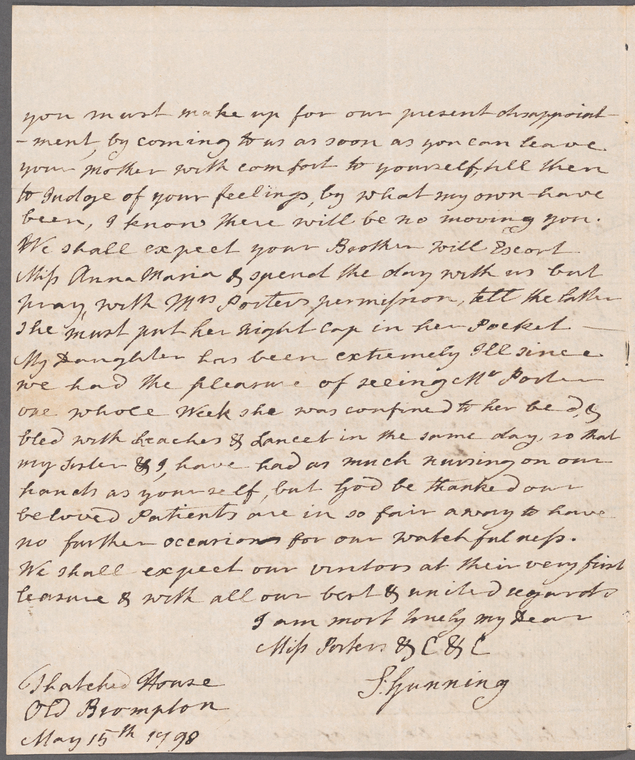 you must make up for our present disappoint-
-ment, by coming to us as soon as you can leave
your mother with comfort to yourself, till then
to Judge of your feelings, by what my own have
been, I know there will be no moving you.
We shall expect your Brother will Escort
Miss Anna Maria & spend the day with us but
pray, with Mrs Porters, permission, tell the latter
She must put her Night Cap in her Pocket —
My Daughter has been extremely Ill since
we had the pleasure of seeing Mr Porter
one whole Week she was confined to her bed, &
bled with leaches & Lancet in the same day, so that
my Sister & I, have had as much nursing on our
hands as yourself, but God be thanked our
beloved Patients are in so fair a way to have
no further occasion for our watchfulness.
We shall expect our visitors at their very first
leasure & with all our best & united regards
I am most truely my Dear
Miss Porters & C & C
S: Gunning
Thatched House
Old Brompton
May 15th 1798